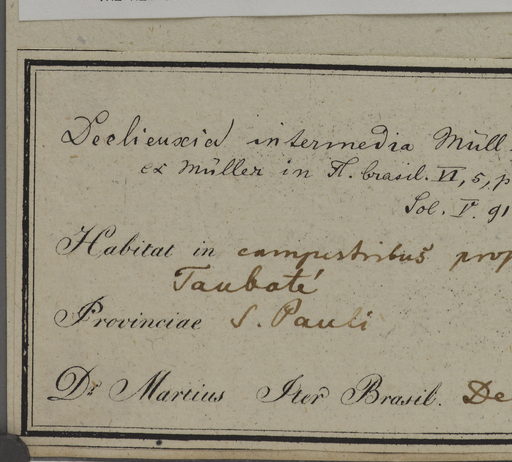 Declieuxia intermedia Müll.
ex Müller in Fl. brasil. VI, 5, p
Habitat in campestribus prop
Taubaté
Provinciae S. Pauli
Dr Martius Iter Brasil. De